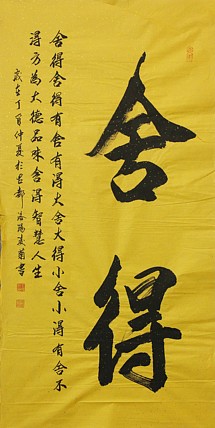 舍得
舍得舍得有舍有得大舍大得小舍小得有舍不
得方为大德品味舍得智慧人生
岁在丁酉仲夏于古都洛阳凌菊书